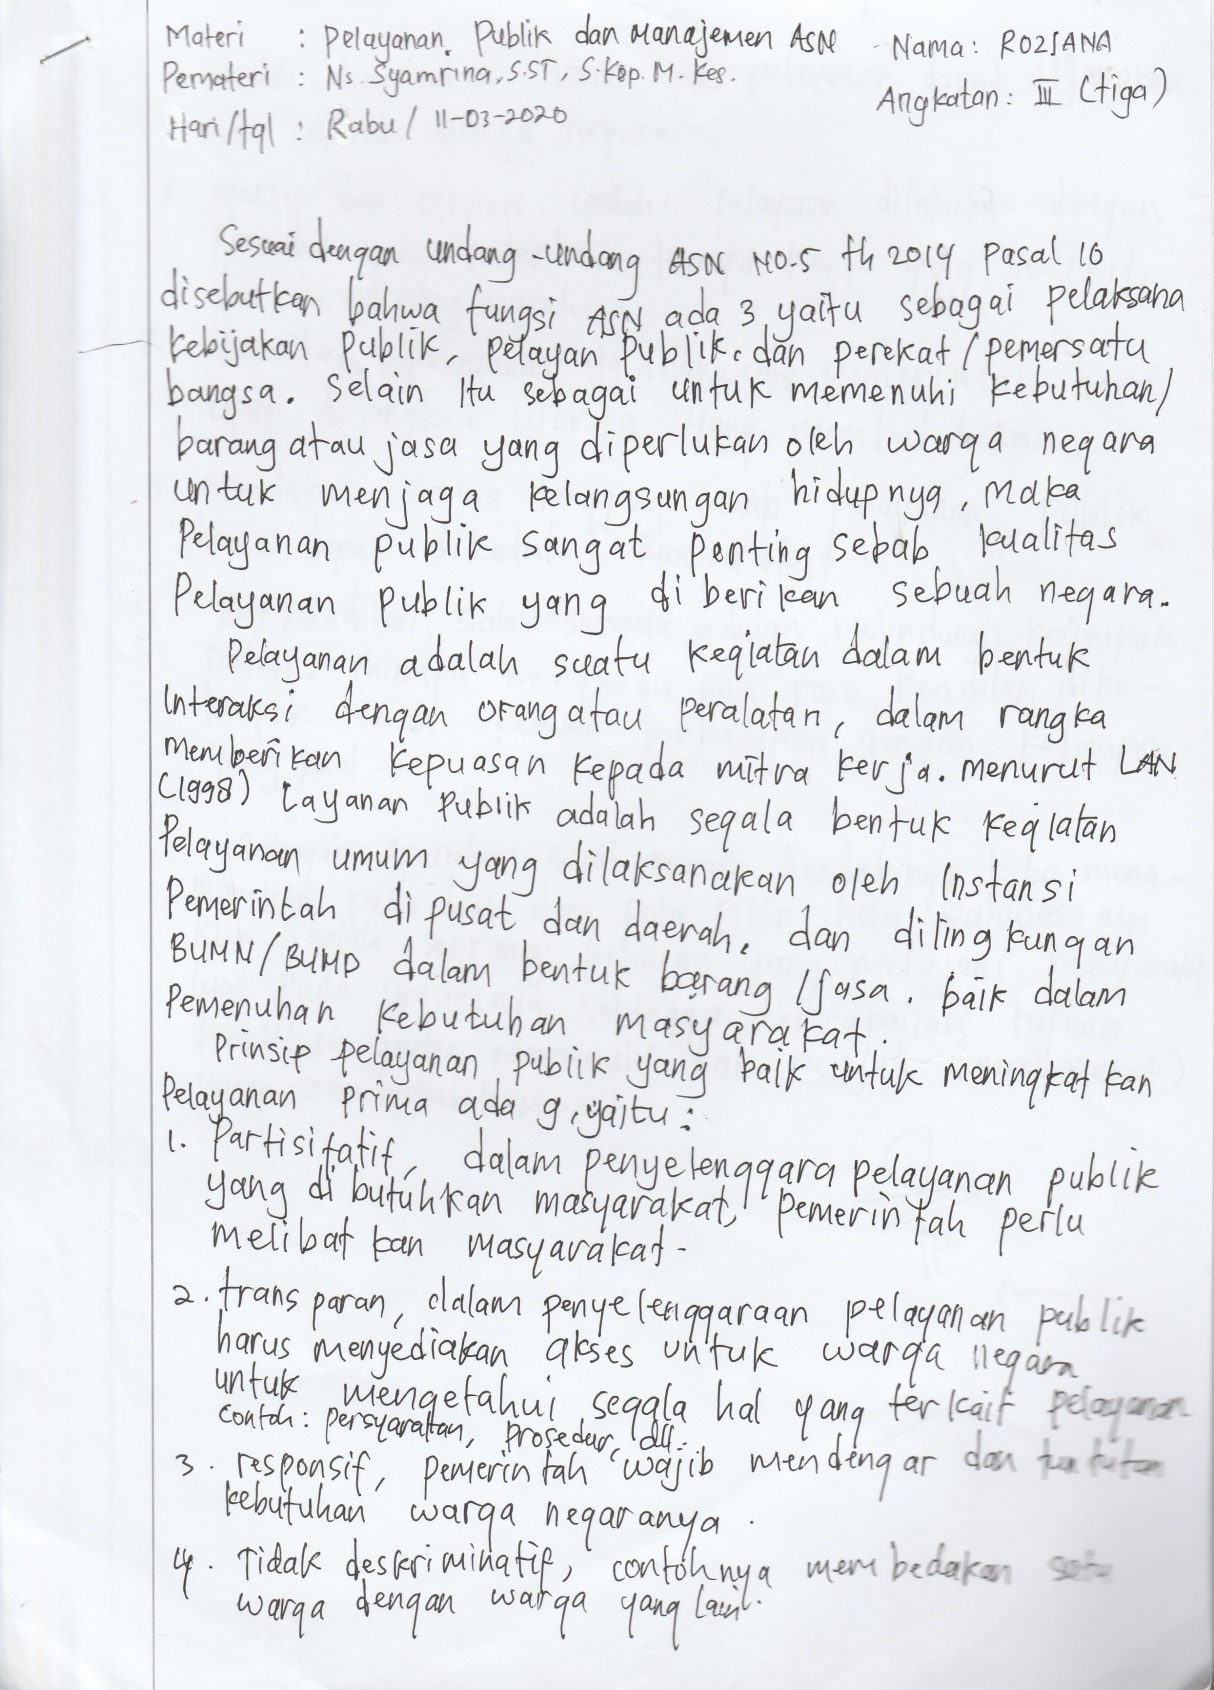 Materi : Pelayanan Publik dan Manajemen ASN
Nama: ROZIANA
Pemateri : Ns. Syamrina, S.ST, S.Kep. M. Kes.
Angkatan: III (tiga)
Hari/tgl : Rabu / 11-03-2020
Sesuai dengan undang-undang ASN NO.5 th 2014 Pasal 10
disebutkan bahwa fungsi ASN ada 3 yaitu sebagai pelaksana
kebijakan publik, pelayan publik, dan perekat/pemersatu
bangsa. Selain Itu sebagai untuk memenuhi kebutuhan/
barang atau jasa yang diperlukan oleh warga negara
untuk menjaga kelangsungan hidupnya, maka
Pelayanan publik sangat penting sebab kualitas
Pelayanan publik yang di berikan sebuah negara.
Pelayanan adalah suatu kegiatan dalam bentuk
Interaksi dengan orang atau peralatan, dalam rangka
memberikan kepuasan kepada mitra kerja. menurut LAN
(1998) Layanan Publik adalah segala bentuk kegiatan
Pelayanan umum yang dilaksanakan oleh Instansi
Pemerintah di pusat dan daerah, dan dilingkungan
BUMN/BUMD dalam bentuk barang /jasa. baik dalam
Pemenuhan kebutuhan masyarakat.
Prinsip pelayanan publik yang baik untuk meningkatkan
Pelayanan prima ada 9, yaitu:
1. Partisifatif, dalam penyelenggara pelayanan publik
yang di butuhkan masyarakat, pemerintah perlu
melibatkan masyarakat-
2. transparan, dalam penyelenggaraan pelayanan publik
harus menyediakan akses untuk warga negara
untuk mengetahui segala hal yang terkait pelayanan
contoh: persyaratan, prosedur, dll.
3. responsif, pemerintah wajib mendengar dan tuntutan
kebutuhan warga negaranya.
4. Tidak deskriminatif, contohnya membedakan satu
warga dengan warga yang lain.